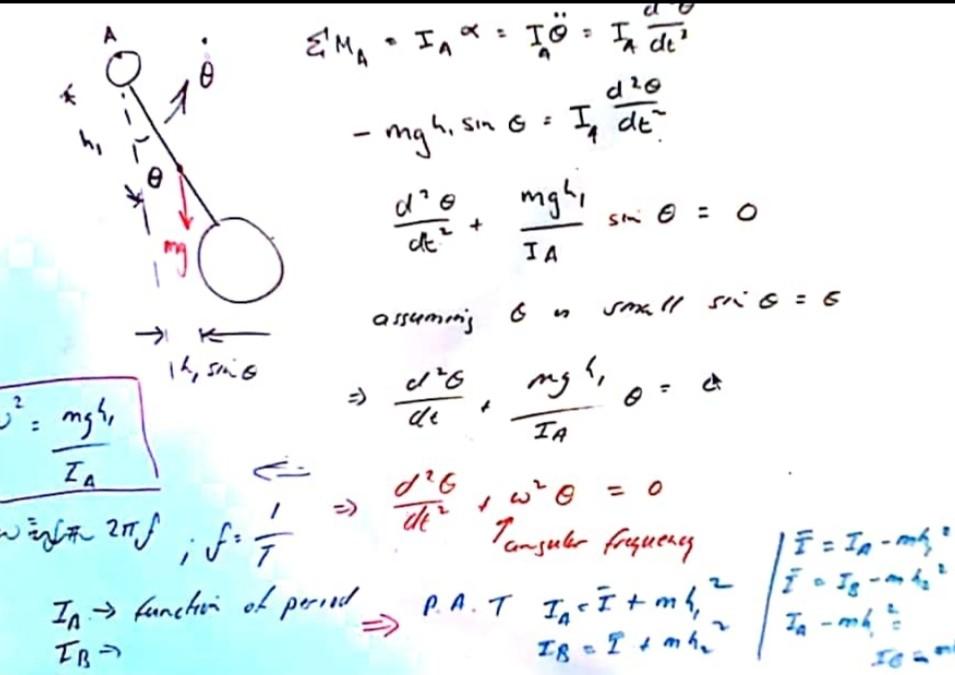 A
θ̇
ΣM_A = I_A α = I_A θ̈ = I_A d²θ/dt²
h₁
θ
mg
- mgh₁ sin θ = I_A d²θ/dt²
d²θ/dt² + mgh₁/I_A sin θ = 0
h₁ sin θ
assuming θ is small sin θ = θ
⇒ d²θ/dt + mgh₁/I_A θ =
ω² = mgh₁/I_A
⇐ ⇒ d²θ/dt² + ω² θ = 0
angular frequency
2πf ; f = 1/T
I_A → function of period ⇒ P.A.T I_A = Ī + mh₁²
I_B → I_B = Ī + mh₂²
Ī = I_A - mh₁²
Ī = I_B - mh₂²
I_A - mh₁² =